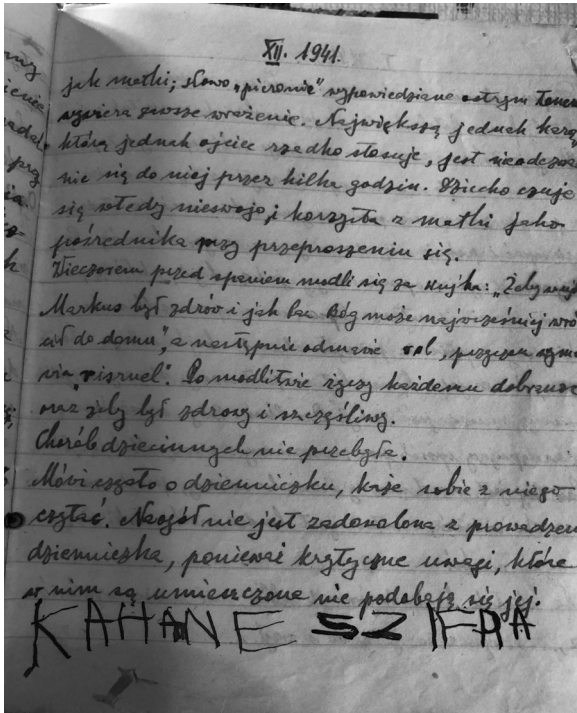 XII. 1941.
jak matki; słowo „pieronie" wypowiedziane ostrym tonem
wywiera zawsze wrażenie. Największą jednak karą
którą jednak ojciec rzadko stosuje, jest nieodzywa
nie się do niej przez kilka godzin. Dziecko czuje
się wtedy nieswojo, i korzysta z matki jako
pośrednika przy przeproszeniu się.
Wieczorem przed spaniem modli się za wujka: „Żeby wujek
Markus był zdrów i jak Pan Bóg może najwcześniej wró
cił do domu", a następnie odmawia, przyczem wyma
wia „risruel". Po modlitwie życzy każdemu dobranoc
oraz żeby był zdrowy i szczęśliwy.
Chorób dziecinnych nie przebyła.
Mówi często o dzienniczku, każe sobie z niego
czytać. Naogół nie jest zadowolona z prowadzen
dzienniczka, ponieważ krytyczne uwagi, które
w nim są umieszczone nie podobają się jej.
KAHANE SZIFRA